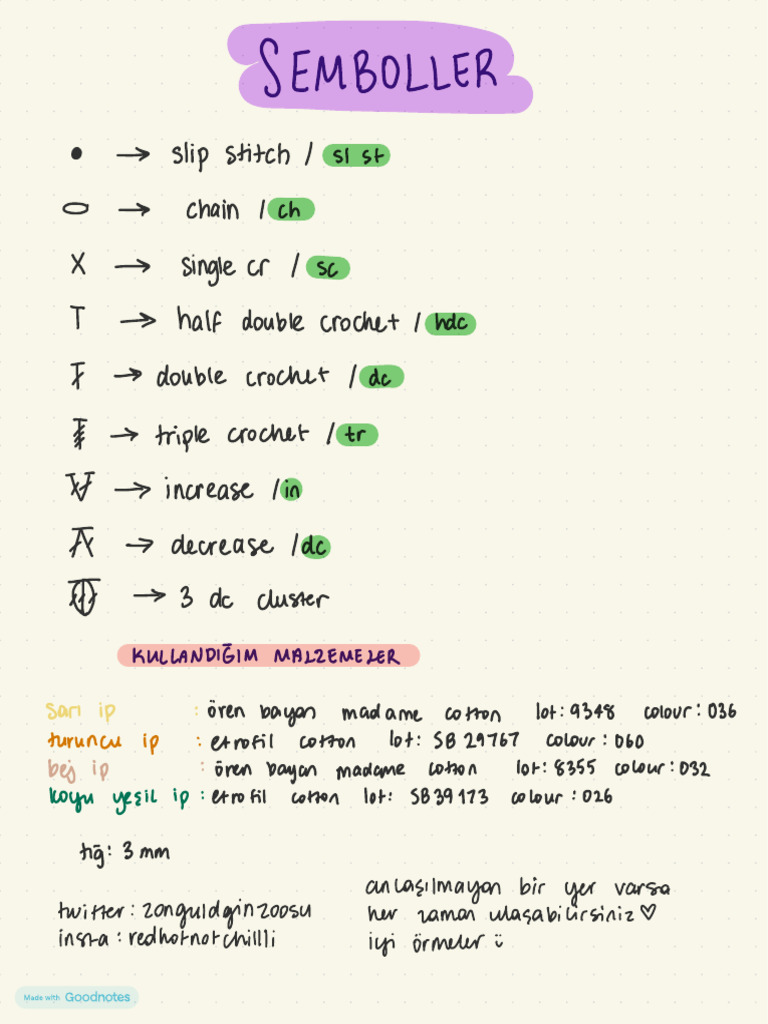 SEMBOLLER
• → slip stitch / sl st
⬭ → chain / ch
X → single cr / sc
T → half double crochet / hdc
→ double crochet / dc
→ triple crochet / tr
→ increase / in
→ decrease / dc
→ 3 dc cluster
KULLANDIĞIM MALZEMELER
sarı ip : ören bayan madame cotton lot: 9348 colour: 036
turuncu ip : etrofil cotton lot: SB 29767 colour: 060
bej ip : ören bayan madame cotton lot: 8355 colour: 032
koyu yeşil ip : etrofil cotton lot: SB39173 colour: 026
tığ: 3 mm
anlaşılmayan bir yer varsa
her zaman ulaşabilirsiniz ♡
iyi örmeler ü
twitter: zonguldginzoosu
insta: redhotnotchillli
Made with Goodnotes